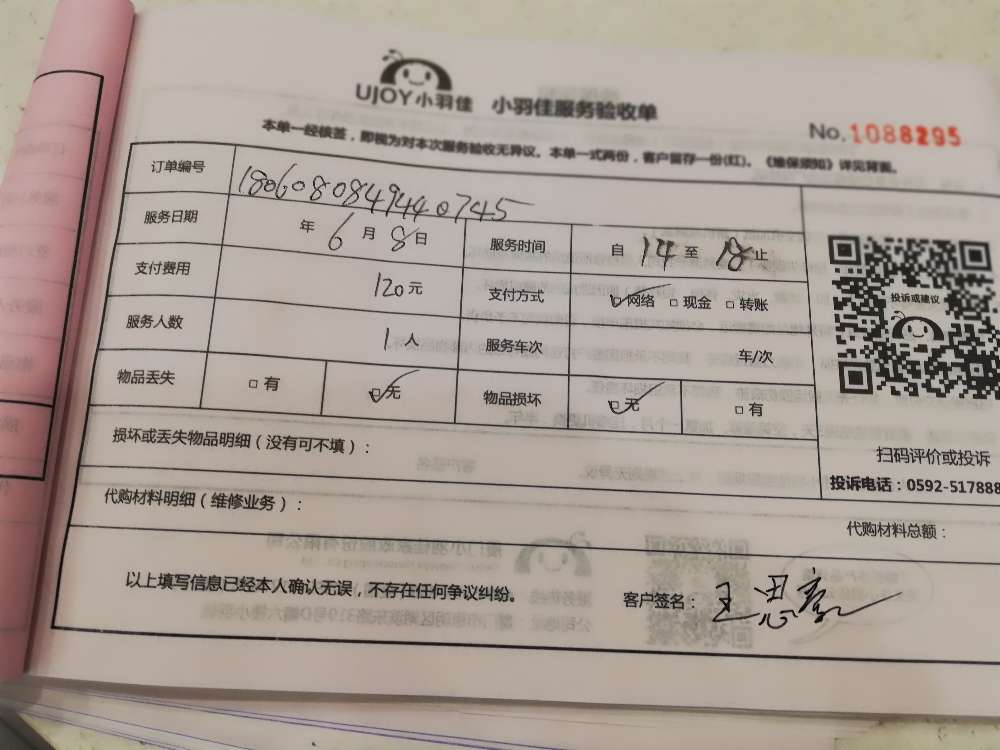 UJOY小羽佳 小羽佳服务验收单
No.1088295
本单一经核签，即视为对本次服务验收无异议。本单一式两份，客户留存一份(红)。《维保须知》详见背面。
订单编号 1806080849440745
服务日期 年 6 月 8 日 服务时间 自 14 至 18 止
支付费用 120元 支付方式 ☑网络 □现金 □转账
服务人数 1 人 服务车次 车/次
物品丢失 □有 ☑无 物品损坏 ☑无 □有
投诉或建议
扫码评价或投诉
投诉电话：0592-517888
损坏或丢失物品明细（没有可不填）：
代购材料明细（维修业务）：
代购材料总额：
以上填写信息已经本人确认无误，不存在任何争议纠纷。 客户签名：王思